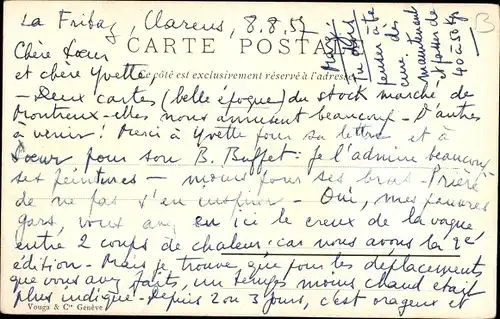 La Fribaz, Clarens, 8.8.57
CARTE POSTALE
Chère Sœur
Ce côté est exclusivement réservé à l'adresse
et chère Yvette
- Deux cartes (belle époque) du stock marché de
Montreux - elles nous amusent beaucoup - D'autres
à venir! Merci à Yvette pour sa lettre et à
Sœur pour son B. Buffet: je l'admire beaucoup
ses peintures - moins pour ses bras - Prière
de ne pas s'en inspirer - Oui, mes pauvres
gars, vous avez eu ici le creux de la vague,
entre 2 coups de chaleur, car nous avons la 2e
édition - Mais je trouve que pour les déplacements
que vous avez faits, un temps moins chaud était
plus indiqué - Depuis 2 ou 3 jours, c'est orageux et
Vouga & Cie Genève
penser
dès
maintenant
et
40 à 50 kg
B